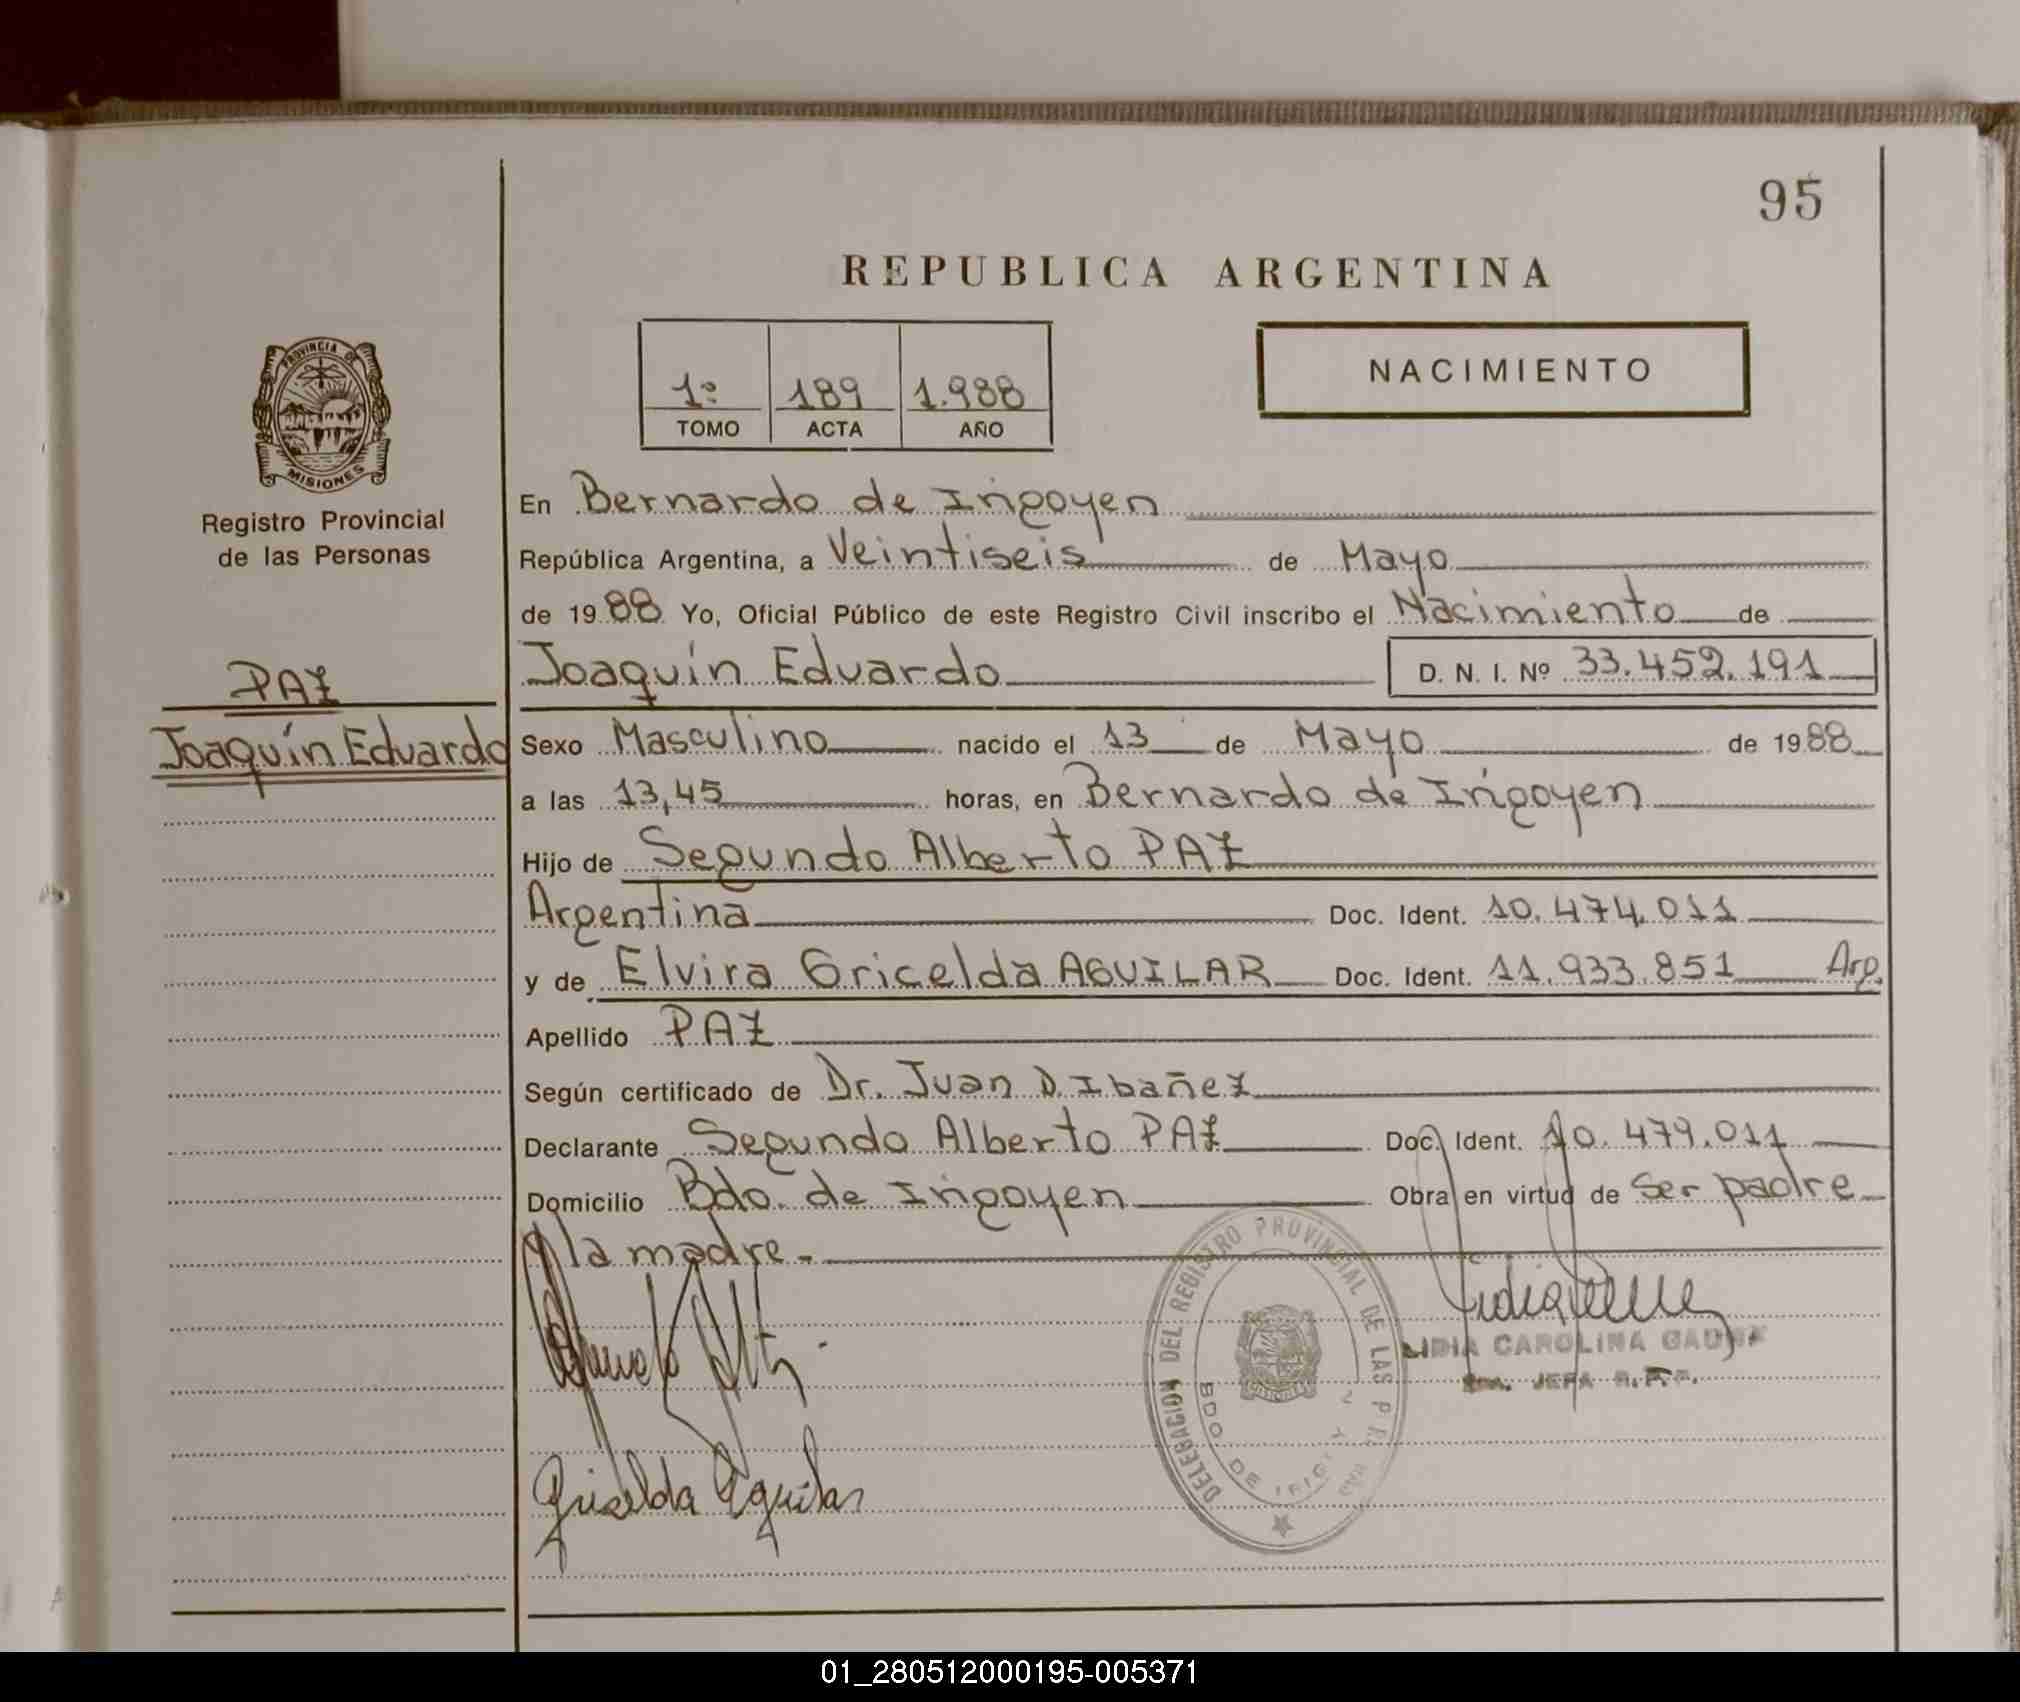 95
REPUBLICA ARGENTINA
PROVINCIA DE
MISIONES
Registro Provincial
de las Personas
1º 189 1.988
TOMO ACTA AÑO
NACIMIENTO
En Bernardo de Irigoyen
República Argentina, a Veintiseis de Mayo
de 1988 Yo, Oficial Público de este Registro Civil inscribo el Nacimiento de
Joaquín Eduardo D. N. I. Nº 33.452.191
PAZ
Joaquín Eduardo
Sexo Masculino nacido el 13 de Mayo de 1988
a las 13,45 horas, en Bernardo de Irigoyen
Hijo de Segundo Alberto PAZ
Argentina Doc. Ident. 10.474.011
y de Elvira Gricelda AGUILAR Doc. Ident. 11.933.851 Arg.
Apellido PAZ
Según certificado de Dr. Juan D. Ibañez
Declarante Segundo Alberto PAZ Doc. Ident. 10.479.011
Domicilio Bdo. de Irigoyen Obra en virtud de ser padre
y la madre.-
DELEGACION DEL REGISTRO PROVINCIAL DE LAS
BDO DE
LIDIA CAROLINA
JEFA R.P.P.
Griselda Aguilar
01_280512000195-005371